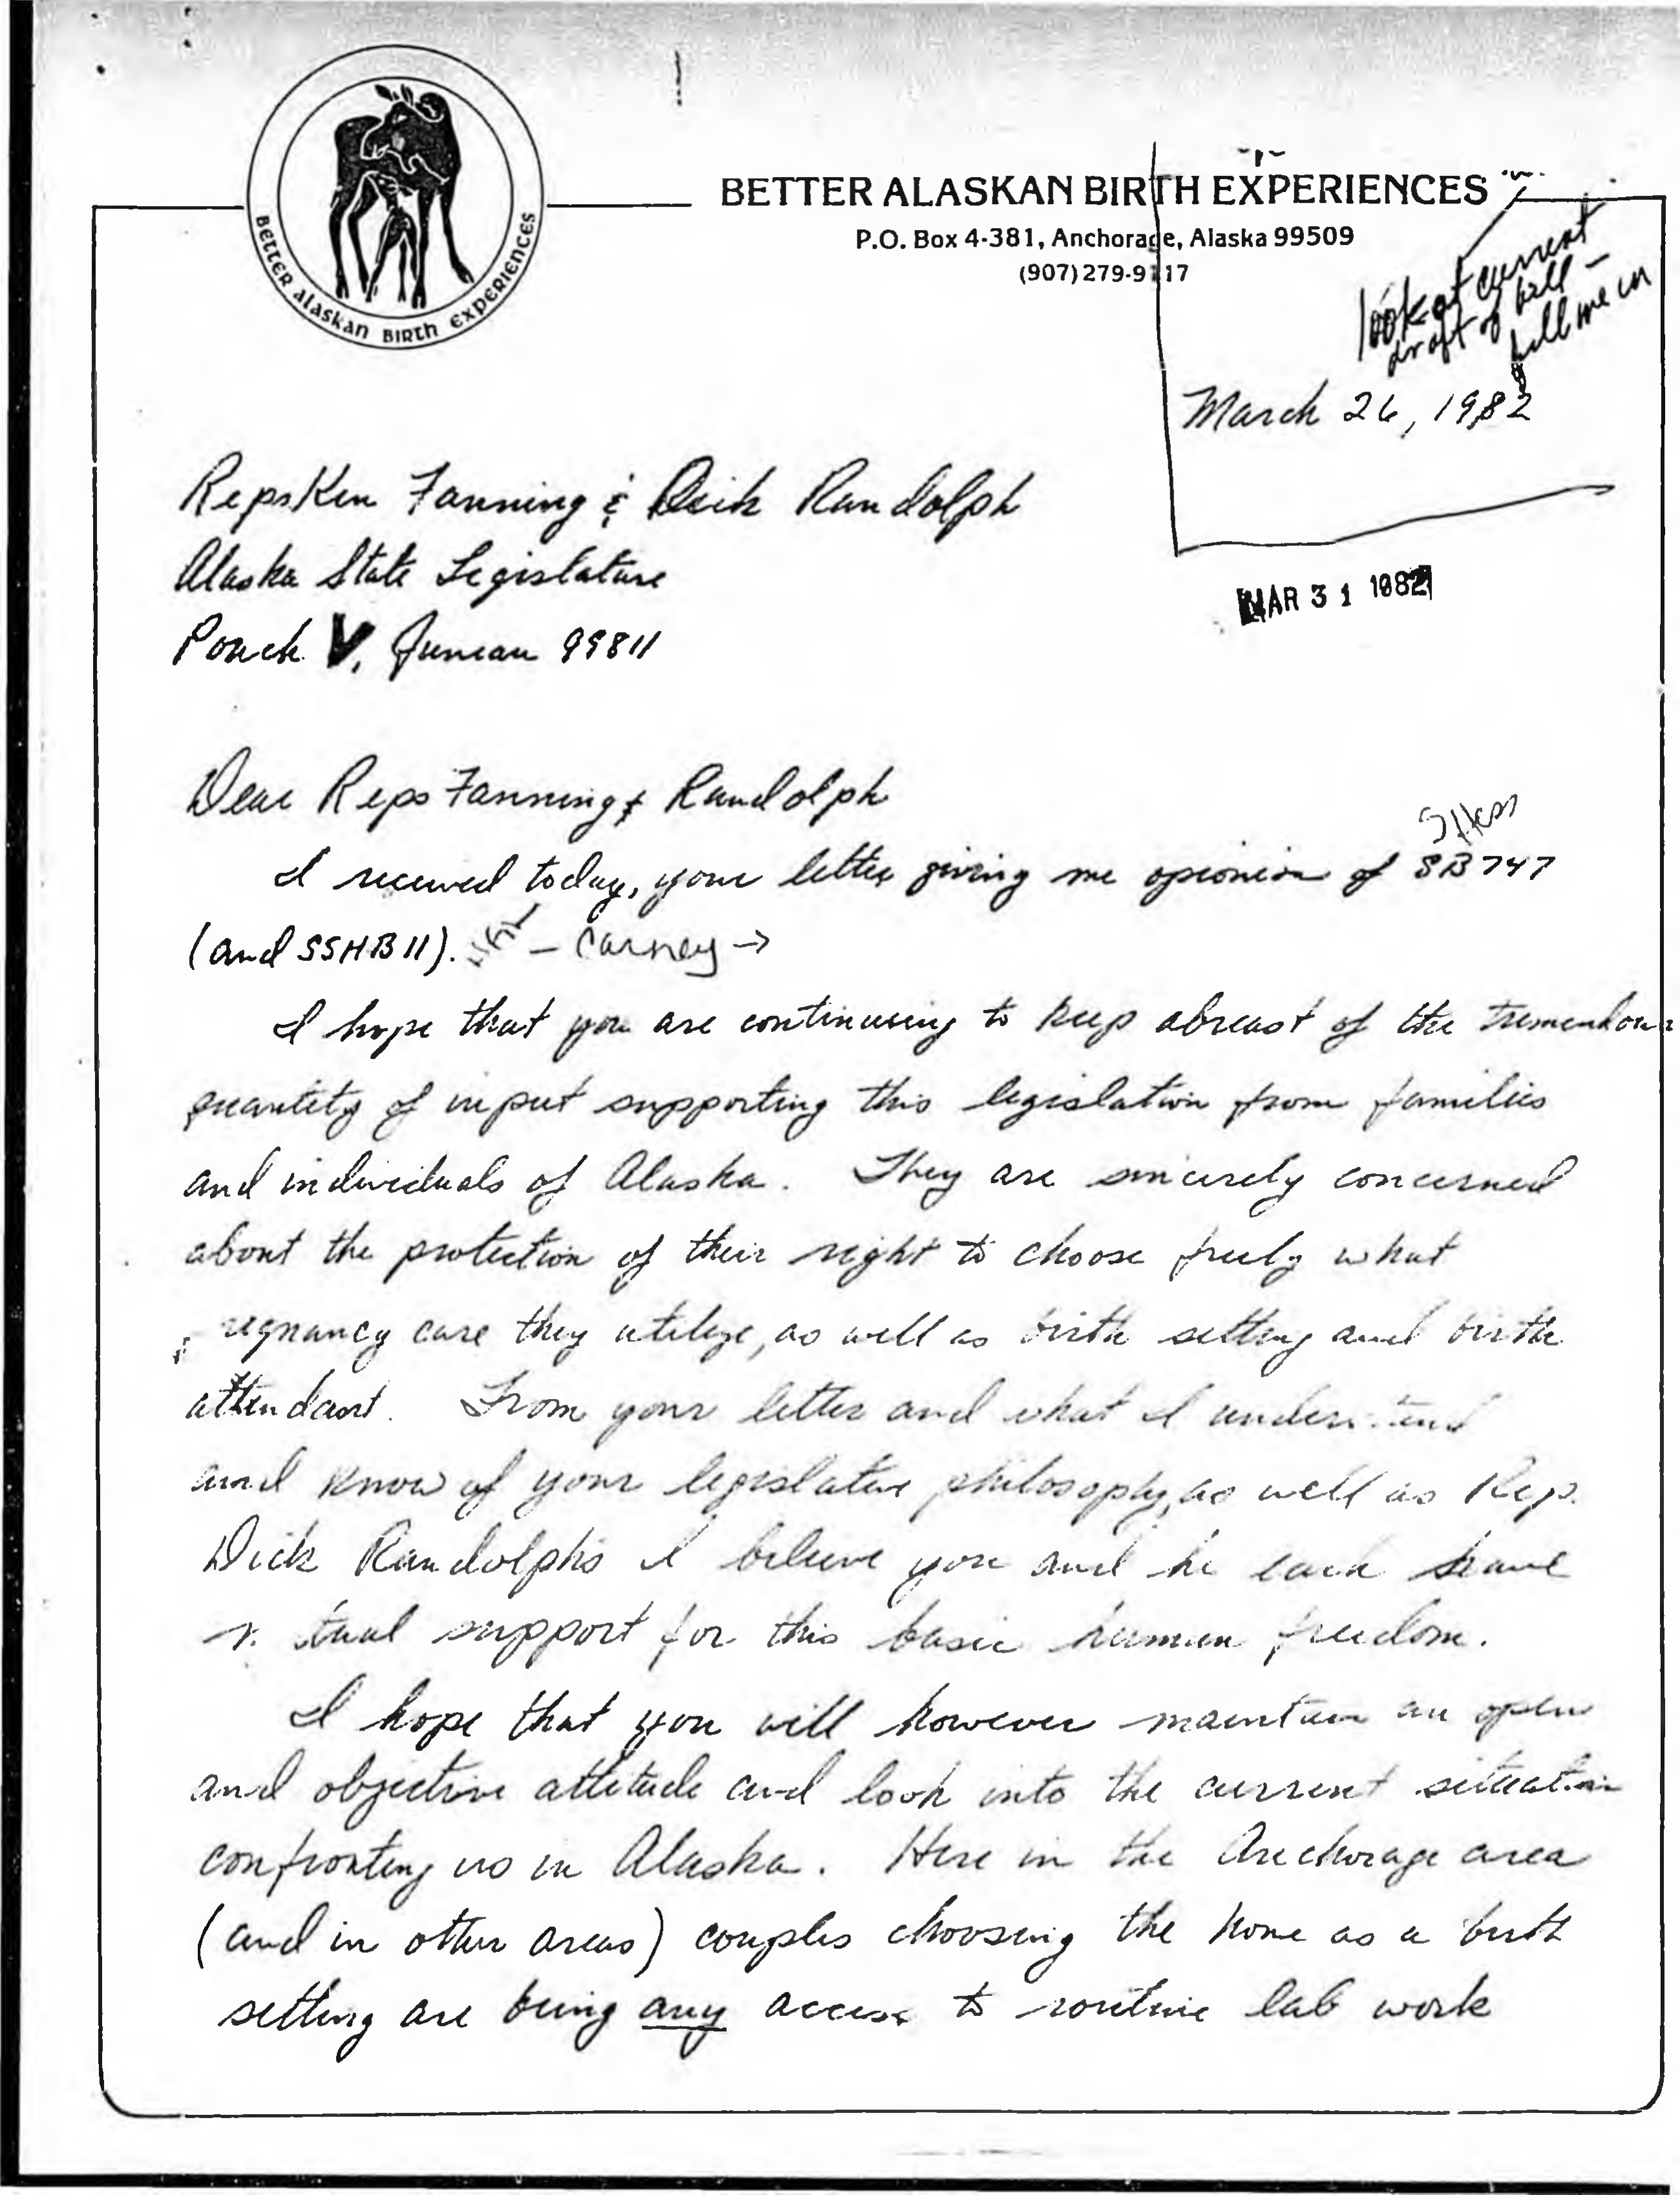 BETTER ALASKAN BIRTH EXPERIENCES
BETTER ALASKAN BIRTH EXPERIENCES
P.O. Box 4-381, Anchorage, Alaska 99509
(907) 279-9117
look at current
draft of bill –
fill me in
March 26, 1982
Reps Ken Fanning & Dick Randolph
Alaska State Legislature
Pouch V, Juneau 99811
MAR 31 1982
Dear Reps Fanning & Randolph
I received today, your letter giving me opionion of SB 747
(and SSHB 11). – Carney →
I hope that you are continueing to keep abreast of the tremendous
quantity of input supporting this legislation from families
and individuals of Alaska. They are sincerely concerned
about the protection of their right to choose freely what
pregnancy care they utilize, as well as birth setting and birth
attendant. From your letter and what I understand
and know of your legislative philosophy, as well as Rep.
Dick Randolph's I believe you and he each have
support for this basic human freedom.
I hope that you will however maintain an open
and objective attitude and look into the current situation
confronting us in Alaska. Here in the Anchorage area
(and in other areas) couples choosing the home as a birth
setting are being any access to routine lab work